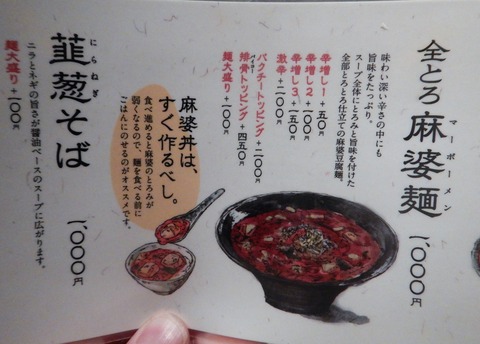 全とろ 麻婆麺
マーボーメン
1,000円
味わい深い辛さの中にも
旨味をたっぷり。
スープ全体にとろみと旨味を付けた
全部とろとろ仕立ての麻婆豆腐麺。
辛増し1 +50円
辛増し2 +100円
辛増し3 +150円
激辛 +200円
パクチートッピング +200円
排骨トッピング +450円
パイコー
麺大盛り +100円
麻婆丼は、
すく作るべし。
食べ進めると麻婆のとろみが
弱くなるので、麺を食べる前に
ごはんにのせるのがオススメです。
韮葱そば
にらねぎ
1,000円
ニラとネギの旨さが醤油ベースのスープに広がります。
麺大盛り +100円